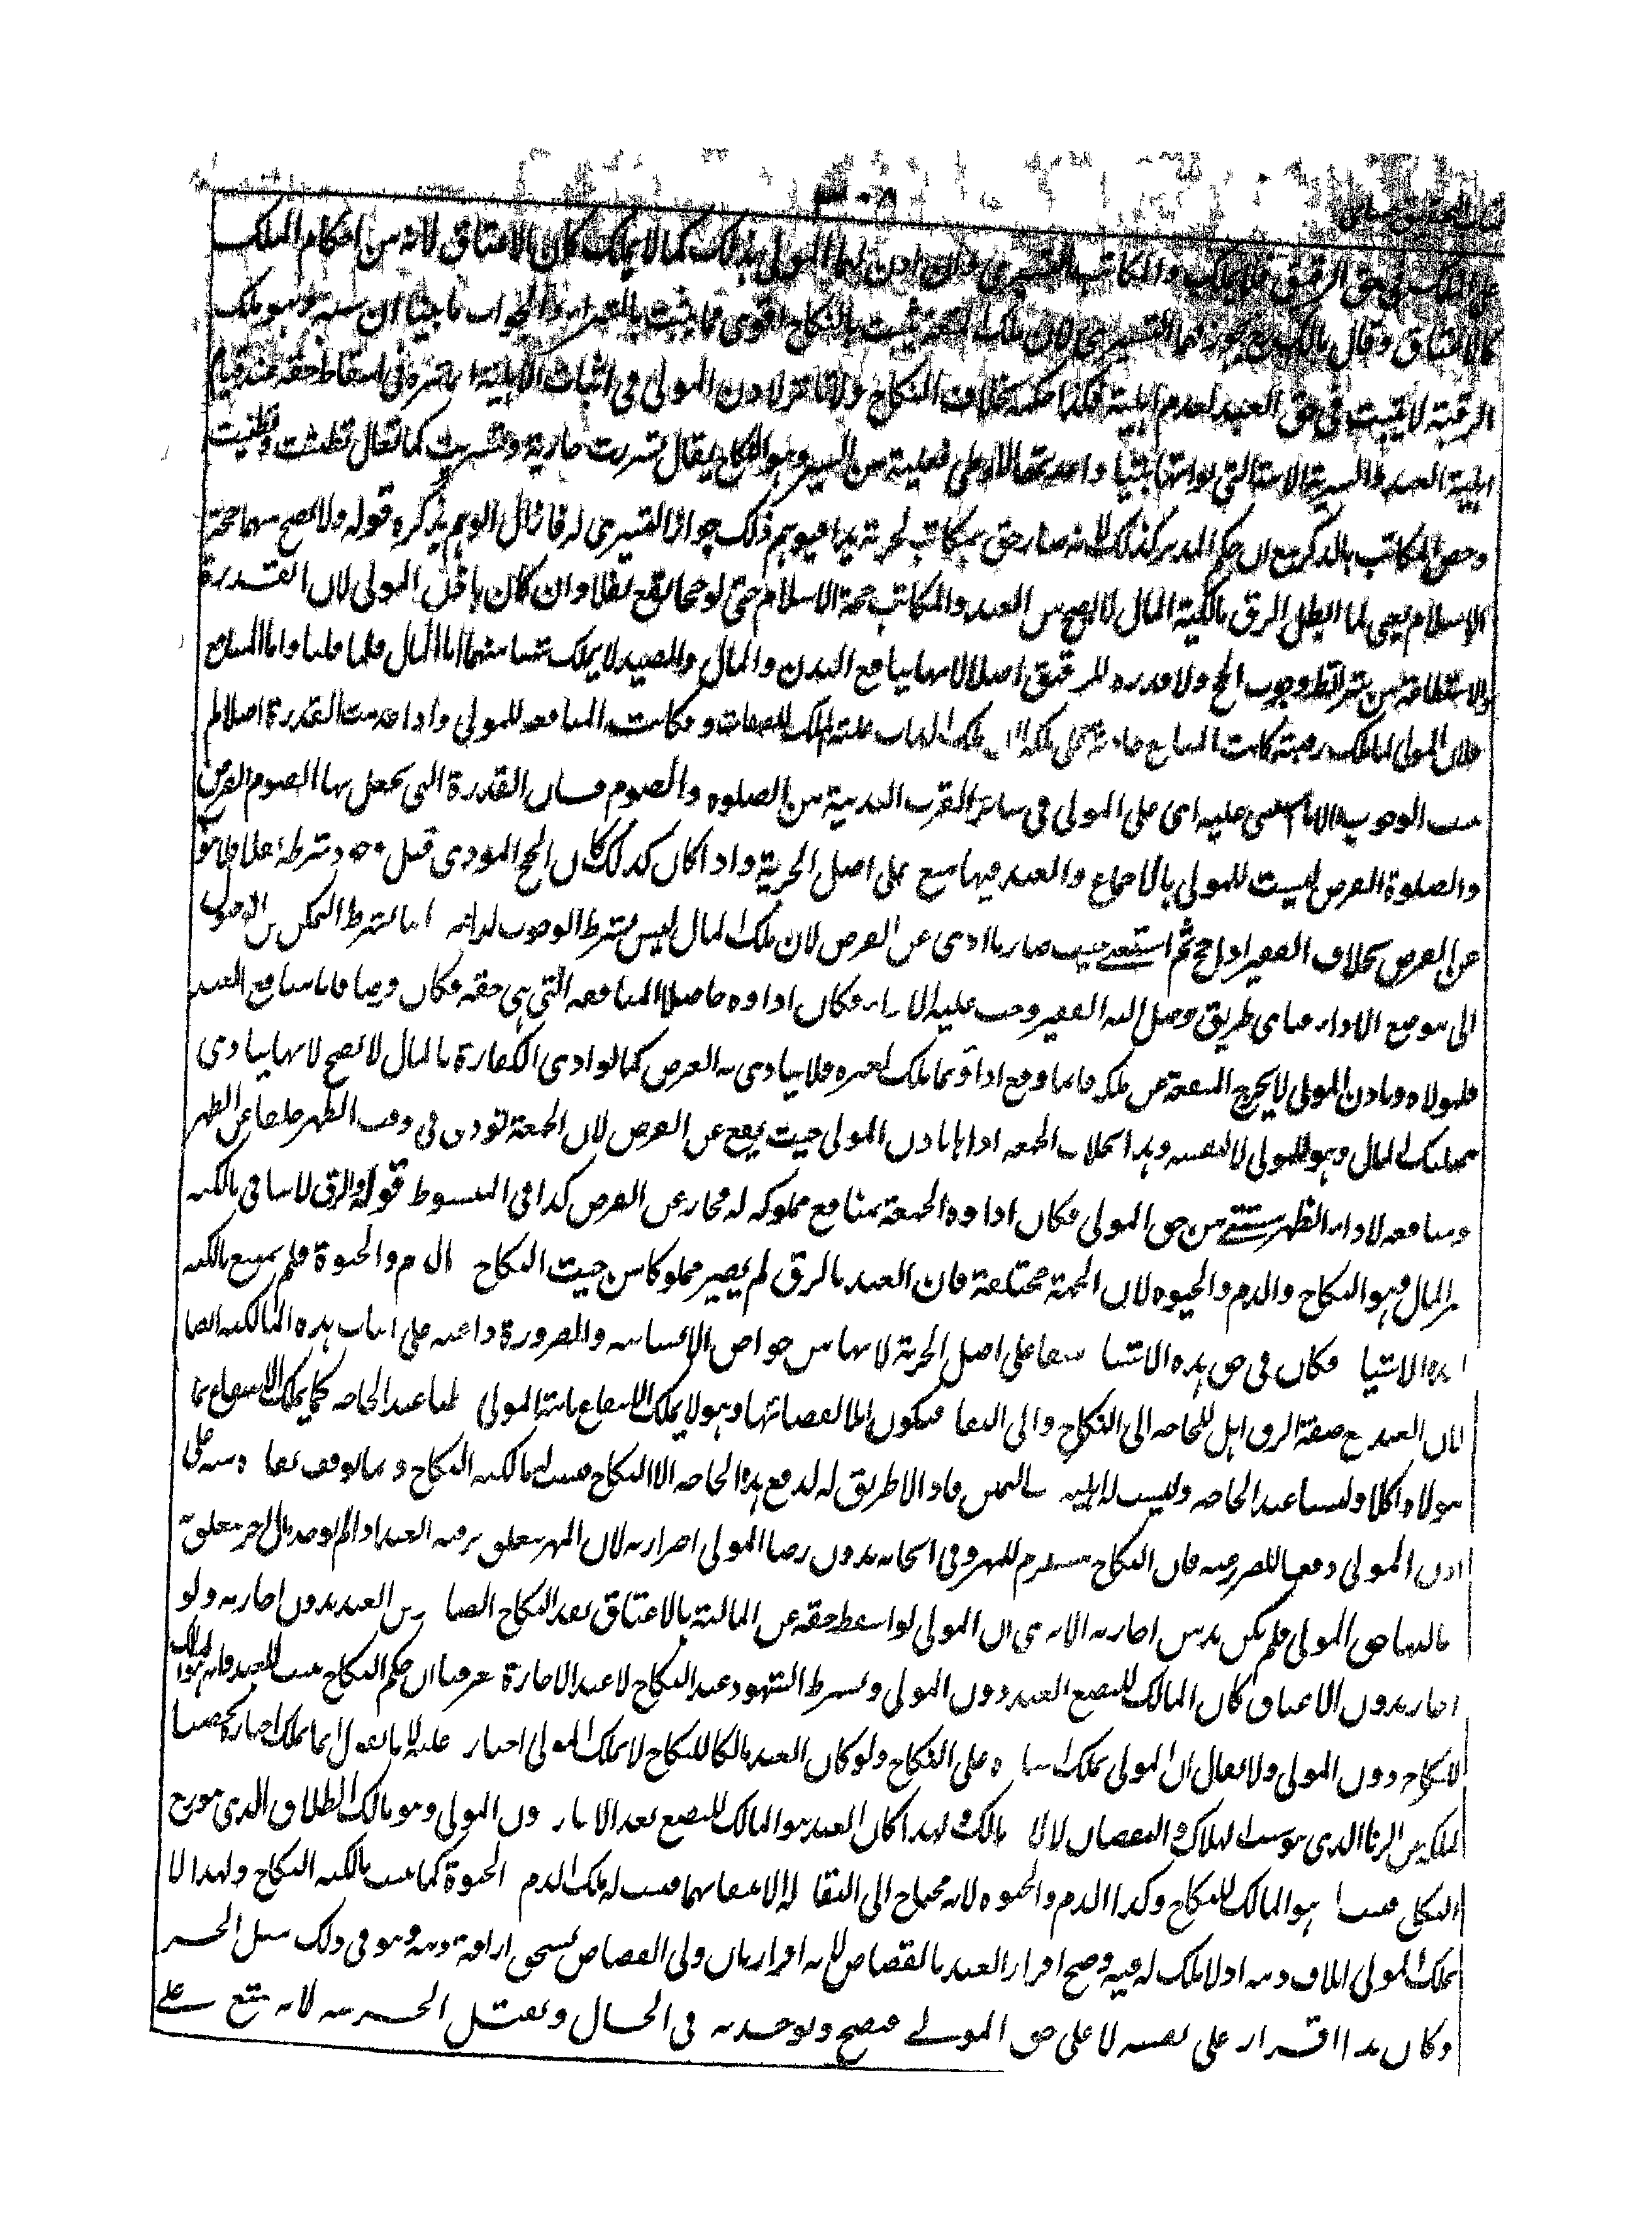 على الملك في حق الرقيق فلا يملك والمكاتب التسري وان اذن لهما المولى بذلك كما لا يملكان الاعتاق لانه من احكام الملك
كالاعتاق وقال مالك رح يجوز لهما التسري لان ملك المتعة يثبت بالنكاح اقوى مما يثبت بالشراء والجواب ما بينا ان سببه وهو ملك
الرقبة لا يثبت في حق العبد لعدم اهليته فكذا حكمه بخلاف النكاح ولا تاثير لاذن المولى في اثبات الاهلية انما تاثيره في اسقاط حقه عند قيام
اهلية العبد والسرية الامة التي بوأتها بيتا واعددتها للوطي فعلية من السر وهو النكاح يقال تسررت جارية وتسريت كما يقال تظننت وتظنيت
وخص المكاتب بالذكر مع ان حكم المدبر كذلك لانه صار حق بمكاسبه لحرية يدا فيوهم ذلك جواز التسري له فازال الوهم بذكره قوله ولا يصح منهما حجة
الاسلام يعني لما ابطل الرق مالكية المال لا يصح من العبد والمكاتب حجة الاسلام حتى لو حجا يقع نفلا وان كان باذن المولى لان القدرة
والاستطاعة من شرائط وجوب الحج ولا قدرة للرقيق اصلا لانها بمنافع البدن والمال والعبد لا يملك شيئا منهما اما المال فلما قلنا واما المنافع
فلان المولى لما ملك رقبته كانت المنافع حادثة على ملكه لان ملك الذات علة لملك الصفات فكانت المنافع للمولى واذا عدمت القدرة اصلا لم
يثبت الوجوب الا فيما استثني عليه اى على المولى في سائر القرب البدنية من الصلوة والصوم فان القدرة التي يحصل بها الصوم الفرض
والصلوة الفرض ليست للمولى بالاجماع والعبد فيها مبقى على اصل الحرية واذا كان كذلك كان الحج المؤدى قبل وجود شرطه نفلا فلا ينوب
عن الفرض بخلاف الفقير اذا حج ثم استغنى حيث صار ما ادى عن الفرض لان ملك المال ليس بشرط الوجوب لذاته انما شرط التمكن من الوصول
الى موضع الاداء فباى طريق وصل اليه الفقير وجب عليه الاداء فكان اداؤه حاصلا بمنافعه التي هي حقه فكان فرضا فاما منافع العبد
فلمولاه وباذن المولى لا يخرج المنفعة عن ملكه فانما وقع اداؤه بما هو ملك لغيره فلا يتادى به الفرض كما لو ادى الكفارة بالمال لا يصح لانها يتادى
بتمليك المال وهو للمولى لا لنفسه وهذا بخلاف الجمعة اذا اداها باذن المولى حيث يقع عن الفرض لان الجمعة تؤدى في وقت الظهر خلفا عن الظهر
ومنافعه لاداء الظهر مستثنى من حق المولى فكان اداؤه الجمعة بمنافع مملوكة له فجاز عن الفرض كذا في المبسوط قوله والرق لا ينافي مالكية
غير المال وهو النكاح والدم والحيوة لان الجهة مختلفة فان العبد بالرق لم يصير مملوكا من حيث النكاح والدم والحيوة فلم يمتنع مالكية
هذه الاشياء فكان في حق هذه الاشياء مبقى على اصل الحرية لانها من خواص الانسانية والضرورة داعية على اثبات هذه المالكية ايضا
لان العبد مع صفة الرق اهل للحاجة الى النكاح والى البقاء فيكون اهلا لقضائها وهو لا يملك الانتفاع بامة المولى وطيا عند الحاجة كما يملك الانتفاع بمال
مولاه اكلا ولبسا عند الحاجة وليس له اهلية ملك اليمين فاذا لا طريق له لدفع هذه الحاجة الا النكاح فيثبت له مالكية النكاح وانما توقف نفاذه منه على
اذن المولى دفعا للضرر عنه فان النكاح مستلزم للمهر وفي ايجابه بدون رضا المولى اضرار به لان المهر يتعلق برقبة العبد اذا لم يوجد مال اخر يتعلق به
مالية هي حق المولى فلم يكن بد من اجازته الا ترى ان المولى لو اسقط حقه عن المالية بالاعتاق بعد النكاح الصادر من العبد بدون اجازته ولو
اجاز بدون الاعتاق كان المالك للبضع العبد دون المولى ويشترط الشهود عند النكاح لا عند الاجازة عرفنا ان حكم النكاح يثبت للعبد فانه هو المالك
للنكاح دون المولى ولا يقال ان المولى يملك اجباره على النكاح ولو كان العبد مالكا للنكاح لا يملك المولى اجباره عليه لانا نقول انما يملك اجباره تحصينا
لملكه عن الزنا الذي هو سبب الهلاك والنقصان لا لانه مالك ولهذا كان العبد هو المالك للبضع بعد الاجبار دون المولى وهو مالك الطلاق الذي هو رفع
النكاح فثبت انه هو المالك للنكاح وكذا الدم والحيوة لانه محتاج الى البقاء ولا بقاء له الا ببقائهما فيثبت له ملك الدم والحيوة كما يثبت مالكية النكاح ولهذا لا
يملك المولى اتلاف دمه اذ لا ملك له فيه وصح اقرار العبد بالقصاص لانه اقرار بان ولي القصاص يستحق اراقة دمه وهو في ذلك مثل الحر
وكان هذا اقرار على نفسه لا على حق المولى فيصح ويؤخذ به في الحال ويقتل الحر به لانه مبقى على